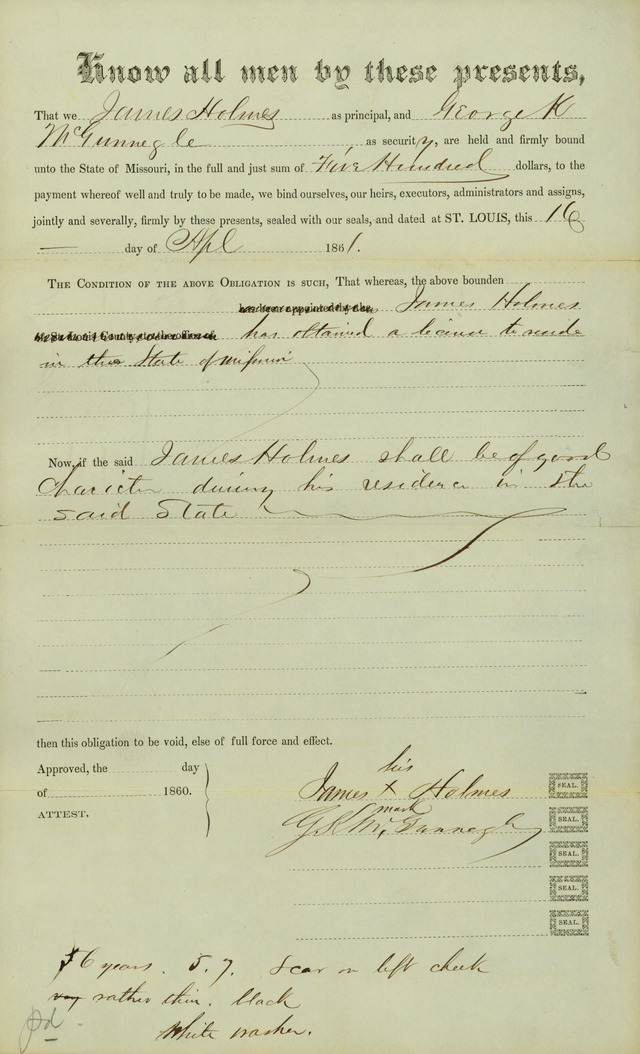 Know all men by these presents,
That we James Holmes as principal, and George K
McGunnegle as security, are held and firmly bound
unto the State of Missouri, in the full and just sum of Five Hundred dollars, to the
payment whereof well and truly to be made, we bind ourselves, our heirs, executors, administrators and assigns,
jointly and severally, firmly by these presents, sealed with our seals, and dated at ST. LOUIS, this 16
— day of Apl 1861.
THE CONDITION OF THE ABOVE OBLIGATION IS SUCH, That whereas, the above bounden
James Holmes
has obtained a license to reside
in the State of Missouri
Now, if the said James Holmes shall be of good
Charicter during his residence in the
said State
then this obligation to be void, else of full force and effect.
Approved, the day
of 1860.
ATTEST.
his
James x Holmes SEAL.
mark
G K McGunnegle SEAL.
SEAL.
SEAL.
SEAL.
6 years. 5.7. Scar on left cheek
rather thin. black
White washer.
pd